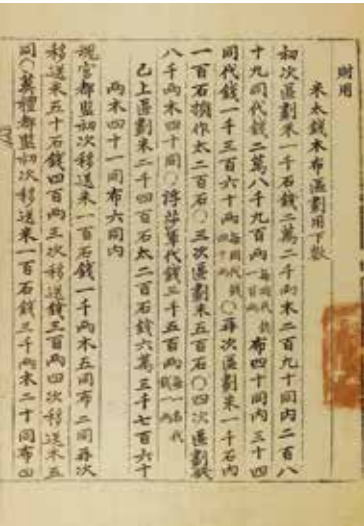 財用
米太錢木布區劃用下數
初次區劃米一千石錢二萬二千兩木二百九十同內二百八
十九同代錢二萬八千九百兩每同代錢一百兩布四十同內三十四
同代錢一千三百六十兩每同代錢四十兩○再次區劃米一千石內
一百石換作太二百石○三次區劃米五百石○四次區劃錢
八千兩木四十同○浮莎軍代錢三千五百兩每一名代錢
已上區劃米二千四百石太二百石錢六萬三千七百六十
兩木四十一同布六同內
魂宮都監初次移送米一百石錢一千兩木五同布二同再次
移送米五十石錢四百兩三次移送錢三百兩四次移送木五
同○葬禮都監初次移送米一百石錢三千兩木二十同布四